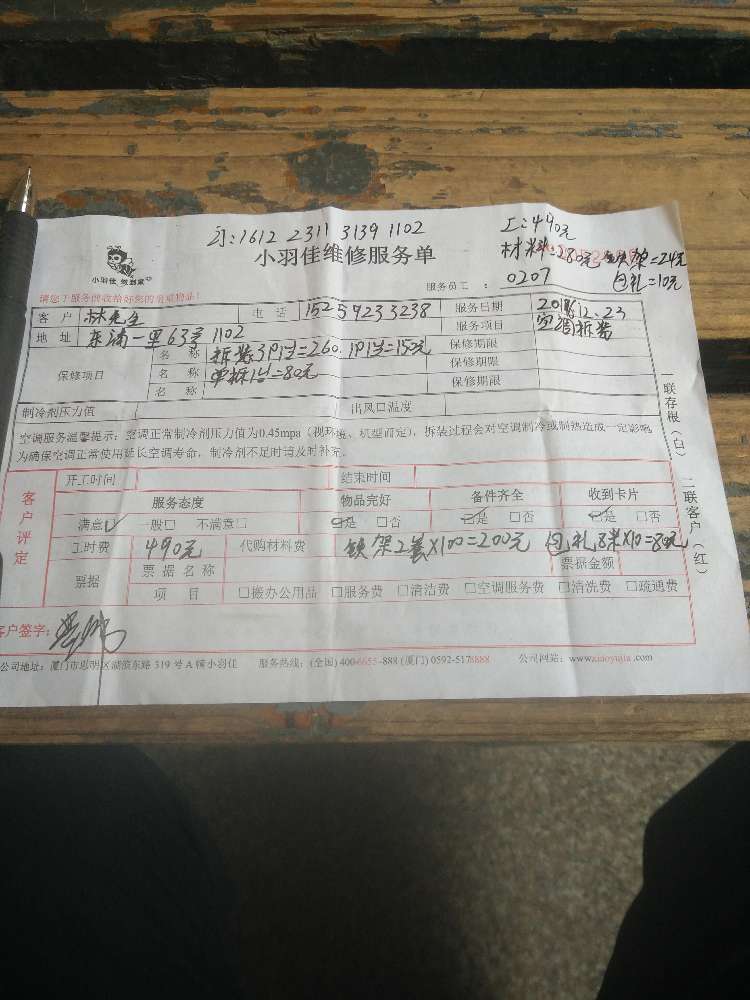 订:1612 2311 3139 1102
工:490元
小羽佳维修服务单
材料:280元 铁架=24元
包扎=10元
小羽佳 做到家
服务员工: 0207
请您于服务前收拾好您的贵重物品!
客 户 林先生 电 话 15259233238 服务日期 2018.12.23
地 址 东浦一里63号 1102 服务项目 空调拆装
保修项目
名 称 拆装3P1台=260. 1P1台=150元 保修期限
名 称 单拆1台=80元 保修期限
名 称 保修期限
制冷剂压力值 出风口温度
空调服务温馨提示:空调正常制冷剂压力值为0.45mpa(视环境、机型而定),拆装过程会对空调制冷或制热造成一定影响
为确保空调正常使用延长空调寿命,制冷剂不足时请及时补充。
一联存根(白) 二联客户(红)
客户评定
开工时间 结束时间
服务态度 物品完好 备件齐全 收到卡片
满意✓ 一般□ 不满意□ ☑是 □否 ☑是 □否 ☑是 □否
工时费 490元 代购材料费 铁架2套X100=200元 包扎8米X10=80元
票据 票据名称 票据金额
项 目 □搬办公用品 □服务费 □清洁费 □空调服务费 □清洗费 □疏通费
客户签字:
公司地址:厦门市思明区湖滨东路319号A幢小羽佳 服务热线:(全国)400-6655-888(厦门)0592-5178888 公司网站:www.xiaoyujia.com